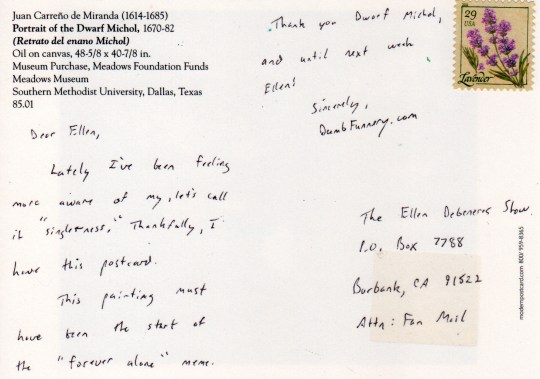 Juan Carreño de Miranda (1614-1685)
Portrait of the Dwarf Michol, 1670-82
(Retrato del enano Michol)
Oil on canvas, 48-5/8 x 40-7/8 in.
Museum Purchase, Meadows Foundation Funds
Meadows Museum
Southern Methodist University, Dallas, Texas
85.01
Dear Ellen,
Lately I've been feeling
more aware of my, let's call
it "singleness." Thankfully, I
have this postcard.
This painting must
have been the start of
the "forever alone" meme.
Thank you Dwarf Michol,
and until next week
Ellen!
Sincerely,
DumbFunnery.com
29
USA
Lavender
The Ellen Degeneres Show
P.O. Box 7788
Burbank, CA 91522
Attn: Fan Mail
modernpostcard.com 800/ 959-8365